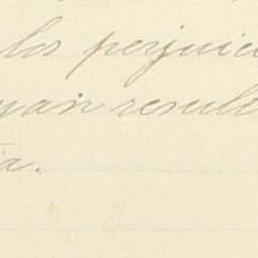 los perjuic
uan result
a.